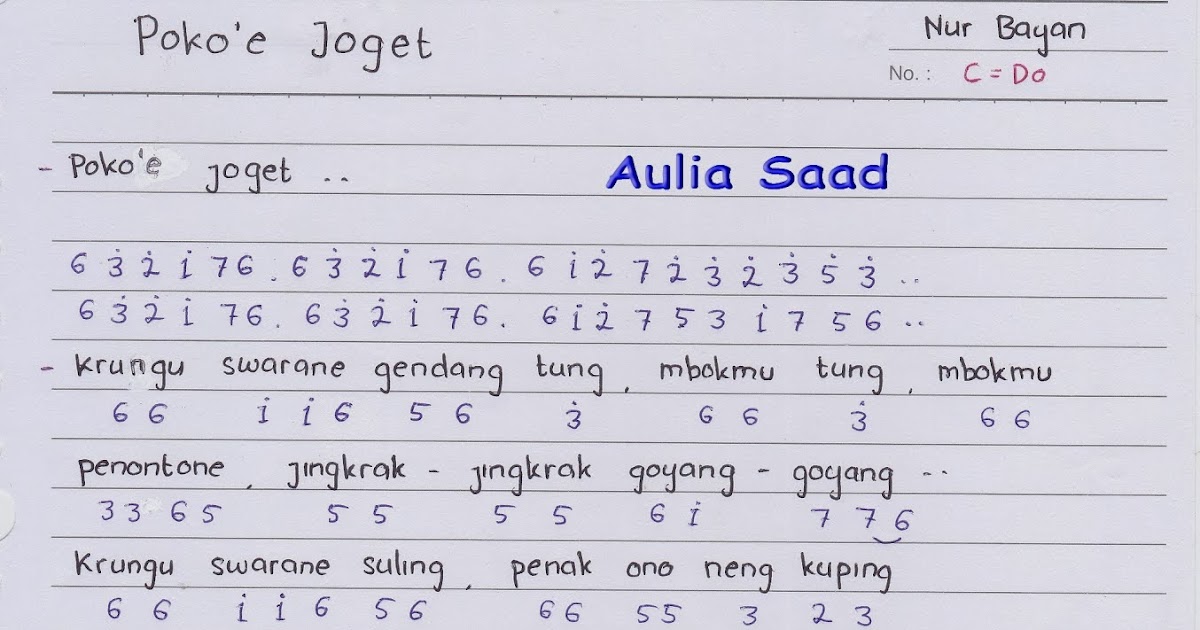 Poko'e Joget
Nur Bayan
No. : C = Do
- Poko'e joget ..
Aulia Saad
6 3̇ 2̇ i 7 6 . 6 3̇ 2̇ i 7 6 . 6 i 2̇ 7 2̇ 3̇ 2̇ 3̇ 5̇ 3̇ ..
6 3̇ 2̇ i 7 6 . 6 3̇ 2̇ i 7 6 . 6 i 2̇ 7 5 3 i 7 5 6 ..
- Krungu swarane gendang tung , mbokmu tung , mbokmu
6 6 i i 6 5 6 3̇ 6 6 3̇ 6 6
penontone , jingkrak - jingkrak goyang - goyang ..
3 3 6 5 5 5 5 5 6 i 7 7 6
Krungu swarane suling , penak ono neng kuping
6 6 i i 6 5 6 6 6 5 5 3 2 3